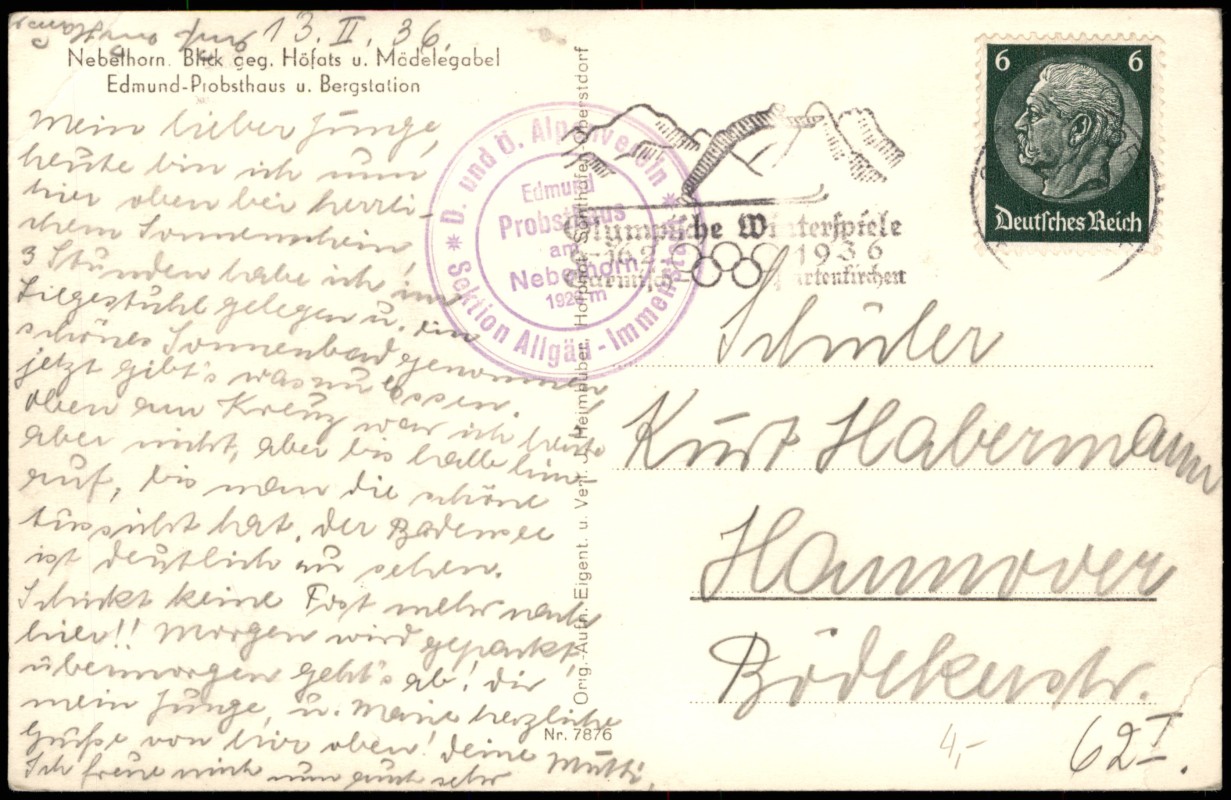 13.II.36.
Nebelhorn. Blick geg. Höfats u. Mädelegabel
Edmund-Probsthaus u. Bergstation
Mein lieber Junge,
heute bin ich nun
hier oben bei herrli-
chem Sonnenschein
3 Stunden habe ich im
Liegestuhl gelegen u. ein
schönes Sonnenbad genommen
jetzt gibt's was zu essen.
oben am Kreuz war ich heute
aber nicht, aber bis halb hin-
auf, bis man die schöne
Aussicht hat. Der Bodensee
ist deutlich zu sehen.
Schickt keine Post mehr nach
hier!! Morgen wird gepackt,
übermorgen geht's ab! Dir
mein Junge, u. Marie herzliche
Grüße von hier oben! Deine Mutti,
Ich freue mich nun auch sehr
D. und Ö. Alpenverein
Sektion Allgäu-Immenstadt
Edmund
Probsthaus
am
Nebelhorn
Orig.-Aufn. Eigent. u. Verl. J. Heimhuber, Hofphot. Sonthofen-Oberstdorf
Nr. 7876
Olympische Winterspiele
6-16.2. 1936
Garmisch-Partenkirchen
6 6
Deutsches Reich
Schüler
Kurt Habermann
Hannover
Bödekerstr.
62 I.
4,-